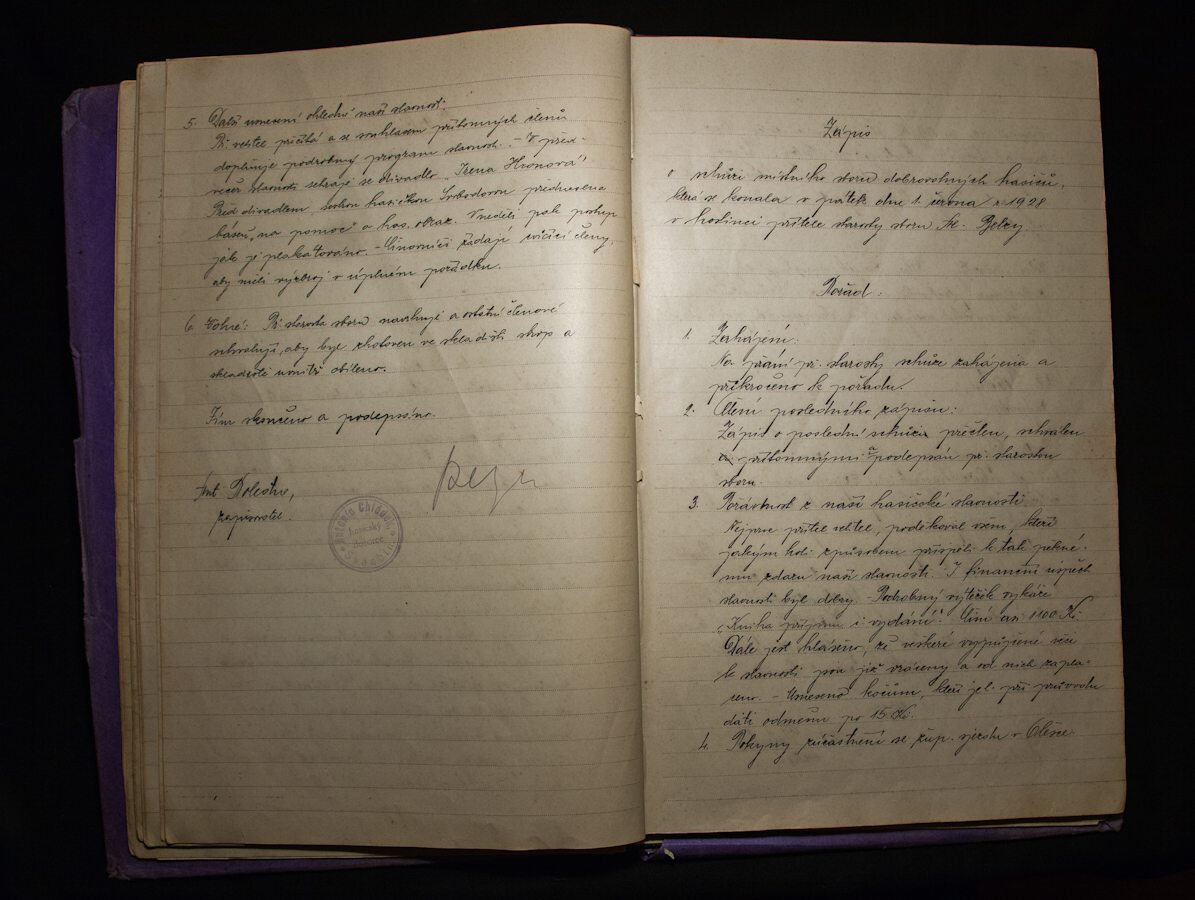 5. Další usnesení ohledně naší slavnosti:
Př. velitel přečítá a se souhlasem přítomných členů
doplňuje podrobný program slavnosti. – V před-
večer slavnosti sehraje se divadlo „Irena Hronová"
Před divadlem, sestrou hasičkou Svobodovou přednesena
báseň „na pomoc" a has. obraz. V neděli pak postup
jak je plakatováno. – Činovníci žádají cvičící členy,
aby měli výzbroj v úplném pořádku.
6. Volné: Př. starosta sboru navrhuje a ostatní členové
schvalují, aby byl zhotoven ve skladišti strop a
skladiště uvnitř obíleno.
Tím skončeno a podepsáno.
Ant. Doležal,
zapisovatel.
Zápis
o schůzi místního sboru dobrovolných hasičů,
která se konala v pátek dne 1. června r. 1928
v hostinci přítele starosty sboru
Pořad:
1. Zahájení:
Na přání př. starosty schůze zahájena a
přikročeno k pořadu.
2. Čtení posledního zápisu:
Zápis o poslední schůzi přečten, schválen
přítomnými a podepsán př. starostou
sboru.
3. z naší hasičské slavnosti
Nejprve přítel velitel, poděkoval všem, kteří
jakýmkoli způsobem přispěli k tak pěkné-
mu zdaru naší slavnosti. I finanční úspěch
slavnosti byl dobrý. – Podrobný výtěžek vykáže
„Kniha příjmu i vydání". Činí asi 1100 Kč.
Dále jest hlášeno, že veškeré vypůjčené věci
k slavnosti jsou již vráceny a od nich zapla-
ceno. – Usneseno kočům, kteří jeli při průvodu
dáti odměnu po 15 Kč.
4. Pokyny zúčastnění se žup. sjezdu v Olešce.